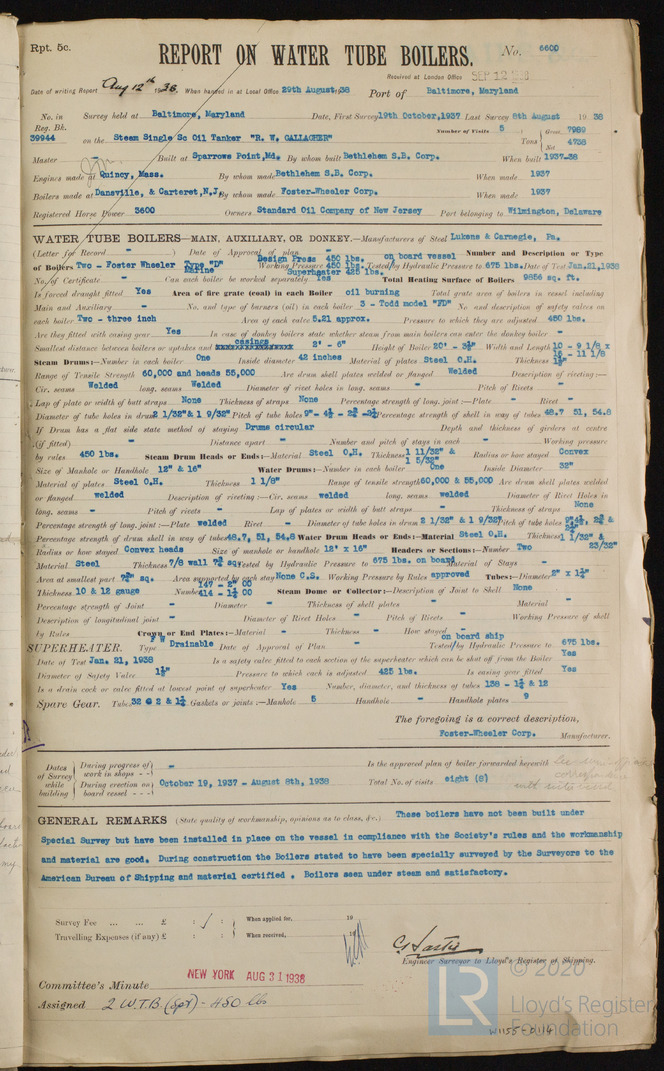 Rpt. 5c.
REPORT ON WATER TUBE BOILERS. No. 6600
Received at London Office SEP 12 1938
Date of writing Report Aug 12th 1938. When handed in at Local Office 29th August, 1938 Port of Baltimore, Maryland
No. in Reg. Bk. Survey held at Baltimore, Maryland Date, First Survey 19th October, 1937 Last Survey 8th August 1938
Number of Visits 5
39944 on the Steam Single Sc Oil Tanker "R. W. GALLAGHER" Tons Gross 7989 Net 4738
Master Built at Sparrows Point, Md. By whom built Bethlehem S.B. Corp. When built 1937-38
Engines made at Quincy, Mass. By whom made Bethlehem S.B. Corp. When made 1937
Boilers made at Dansville, & Carteret, N.J. By whom made Foster-Wheeler Corp. When made 1937
Registered Horse Power 3600 Owners Standard Oil Company of New Jersey Port belonging to Wilmington, Delaware
WATER TUBE BOILERS—MAIN, AUXILIARY, OR DONKEY.—Manufacturers of Steel Lukens & Carnegie, Pa.
(Letter for Record - ) Date of Approval of plan - Design Press 450 lbs. on board vessel Number and Description or Type
of Boilers Two - Foster Wheeler Type "D" Marine Working Pressure 450 lbs. Tested by Hydraulic Pressure to 675 lbs. Date of Test Jan. 21, 1938
Superheater 425 lbs.
No. of Certificate - Can each boiler be worked separately Yes Total Heating Surface of Boilers 9856 sq. ft.
Is forced draught fitted Yes Area of fire grate (coal) in each Boiler oil burning Total grate area of boilers in vessel including
Main and Auxiliary - No. and type of burners (oil) in each boiler 3 - Todd model "FD" No. and description of safety valves on
each boiler Two - three inch Area of each valve 5.21 approx. Pressure to which they are adjusted 450 lbs.
Are they fitted with easing gear Yes In case of donkey boilers state whether steam from main boilers can enter the donkey boiler -
Smallest distance between boilers or uptakes and casings 2' - 6" Height of Boiler 20' - 3½" Width and Length 10 - 9 1/8 x 16 - 11 1/8
Steam Drums:—Number in each boiler One Inside diameter 42 inches Material of plates Steel O.H. Thickness
Range of Tensile Strength 60,000 and heads 55,000 Are drum shell plates welded or flanged Welded Description of riveting:—
Cir. seams Welded long. seams Welded Diameter of rivet holes in long. seams - Pitch of Rivets -
Lap of plate or width of butt straps None Thickness of straps None Percentage strength of long. joint:—Plate - Rivet -
Diameter of tube holes in drum 2 1/32" & 1 9/32" Pitch of tube holes Percentage strength of shell in way of tubes 48.7 51, 54.8
If Drum has a flat side state method of staying Drums circular Depth and thickness of girders at centre
(if fitted) - Distance apart - Number and pitch of stays in each - Working pressure
by rules 450 lbs. Steam Drum Heads or Ends:—Material Steel O.H. Thickness 1 11/32" & 1 5/32" Radius or how stayed Convex
Size of Manhole or Handhole 12" & 16" Water Drums:—Number in each boiler One Inside Diameter 32"
Material of plates Steel O.H. Thickness 1 1/8" Range of tensile strength 60,000 & 55,000 Are drum shell plates welded
or flanged welded Description of riveting:—Cir. seams welded long. seams welded Diameter of Rivet Holes in
long. seams - Pitch of rivets - Lap of plates or width of butt straps - Thickness of straps None
Percentage strength of long. joint:—Plate welded Rivet - Diameter of tube holes in drum 2 1/32" & 1 9/32" Pitch of tube holes
Percentage strength of drum shell in way of tubes 48.7, 51, 54.8 Water Drum Heads or Ends:—Material Steel O.H. Thickness 1 1/32" & 23/32"
Radius or how stayed Convex heads Size of manhole or handhole 12" x 16" Headers or Sections:—Number Two
Material Steel Thickness 7/8 wall Tested by Hydraulic Pressure to 675 lbs. on board Material of Stays -
Area at smallest part Area supported by each stay None C.S. Working Pressure by Rules approved Tubes:—Diameter 2" x 1¼"
Thickness 10 & 12 gauge Number 147 - 2" OD 414 - 1¼ OD Steam Dome or Collector:—Description of Joint to Shell None
Percentage strength of Joint - Diameter - Thickness of shell plates - Material -
Description of longitudinal joint - Diameter of Rivet Holes - Pitch of Rivets - Working Pressure of shell
by Rules - Crown or End Plates:—Material - Thickness - How stayed -
SUPERHEATER. Type F W Drainable Date of Approval of Plan - Tested by Hydraulic Pressure to on board ship 675 lbs.
Date of Test Jan. 21, 1938 Is a safety valve fitted to each section of the superheater which can be shut off from the Boiler Yes
Diameter of Safety Valve 1½" Pressure to which each is adjusted 425 lbs. Is easing gear fitted Yes
Is a drain cock or valve fitted at lowest point of superheater Yes Number, diameter, and thickness of tubes 138 - 1¼ & 12
Spare Gear. Tubes 32 @ 2 & 1¼ Gaskets or joints:—Manhole 5 Handhole - Handhole plates 9
The foregoing is a correct description,
Foster-Wheeler Corp. Manufacturer.
Dates of Survey while building During progress of work in shops - - - Is the approved plan of boiler forwarded herewith
During erection on board vessel - - October 19, 1937 - August 8th, 1938 Total No. of visits eight (8)
GENERAL REMARKS (State quality of workmanship, opinions as to class, &c.) These boilers have not been built under
Special Survey but have been installed in place on the vessel in compliance with the Society's rules and the workmanship
and material are good. During construction the Boilers stated to have been specially surveyed by the Surveyors to the
American Bureau of Shipping and material certified. Boilers seen under steam and satisfactory.
Survey Fee ... ... £ : : When applied for, 19
Travelling Expenses (if any) £ : : When received, 19
Engineer Surveyor to Lloyd's Register of Shipping.
Committee's Minute NEW YORK AUG 31 1938
Assigned 2 W.T.B. (Spt) - 450 lbs
LR © 2020
Lloyd's Register
Foundation
W1155-0114